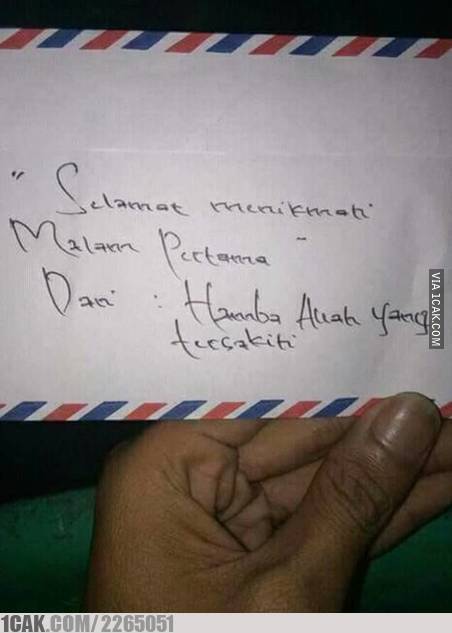 " Selamat menikmati
Malam Pertama "
Dari : Hamba Allah yang
tersakiti
VIA 1CAK.COM
1CAK.COM/2265051